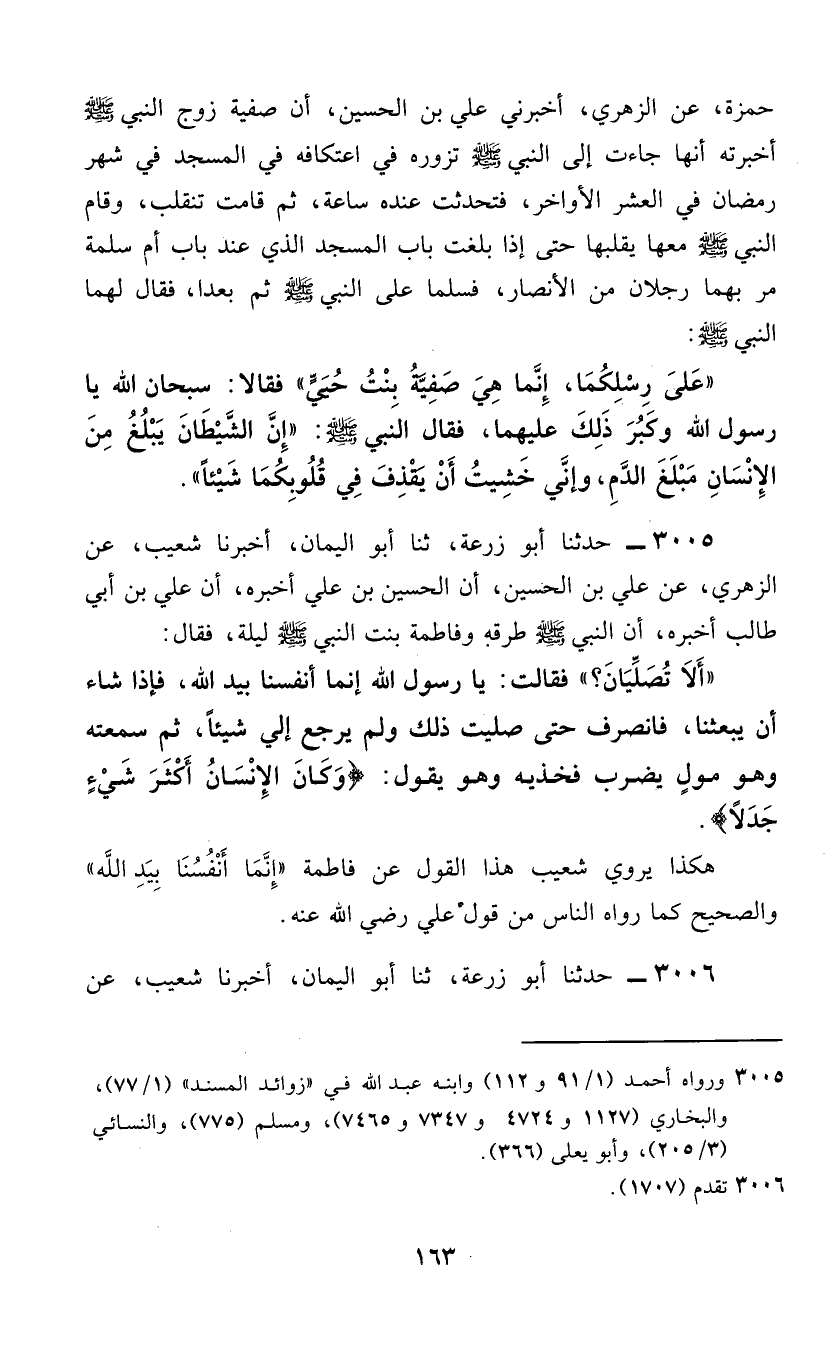 حمزة، عن الزهري، أخبرني علي بن الحسين، أن صفية زوج النبي ﷺ
أخبرته أنها جاءت إلى النبي ﷺ تزوره في اعتكافه في المسجد في شهر
رمضان في العشر الأواخر، فتحدثت عنده ساعة، ثم قامت تنقلب، وقام
النبي ﷺ معها يقلبها حتى إذا بلغت باب المسجد الذي عند باب أم سلمة
مر بهما رجلان من الأنصار، فسلما على النبي ﷺ ثم بعدا، فقال لهما
النبي ﷺ:
«عَلىَ رِسْلِكُمَا، إِنَّما هِيَ صَفِيَّةُ بِنْتُ حُيَيٍّ» فقالا: سبحان الله يا
رسول الله وكَبُرَ ذَلِكَ عليهما، فقال النبي ﷺ: «إِنَّ الشَّيْطَانَ يَبْلُغُ مِنَ
الإِنْسَانِ مَبْلَغَ الدَّمِ، وإنَّي خَشِيتُ أَنْ يَقْذِفَ فِي قُلُوبِكُمَا شَيْئاً».
٣٠٠٥ ـ حدثنا أبو زرعة، ثنا أبو اليمان، أخبرنا شعيب، عن
الزهري، عن علي بن الحسين، أن الحسين بن علي أخبره، أن علي بن أبي
طالب أخبره، أن النبي ﷺ طرقه وفاطمة بنت النبي ﷺ ليلة، فقال:
«أَلَا تُصَلِّيَانَ؟» فقالت: يا رسول الله إنما أنفسنا بيد الله، فإذا شاء
أن يبعثنا، فانصرف حتى صليت ذلك ولم يرجع إلي شيئاً، ثم سمعته
وهو مولٍ يضرب فخذيه وهو يقول: ﴿وَكَانَ الإِنْسَانُ أَكْثَرَ شَيْءٍ
جَدَلاً﴾.
هكذا يروي شعيب هذا القول عن فاطمة «إِنَّمَا أَنْفُسُنَا بِيَدِ اللَّه»
والصحيح كما رواه الناس من قول علي رضي الله عنه.
٣٠٠٦ ـ حدثنا أبو زرعة، ثنا أبو اليمان، أخبرنا شعيب، عن
٣٠٠٥ ورواه أحمد (٩١/١ و ١١٢) وابنه عبد الله في «زوائد المسند» (٧٧/١)،
والبخاري (١١٢٧ و ٤٧٢٤ و ٧٣٤٧ و ٧٤٦٥)، ومسلم (٧٧٥)، والنسائي
(٢٠٥/٣)، وأبو يعلى (٣٦٦).
٣٠٠٦ تقدم (١٧٠٧).
١٦٣